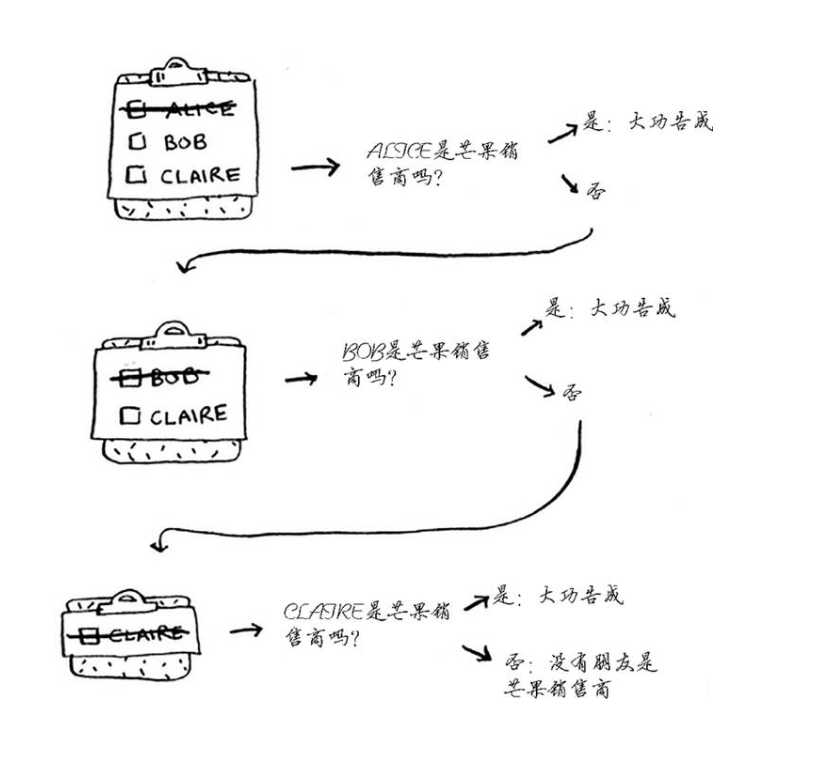 ALICE
BOB
CLAIRE
ALICE是芒果销
售商吗?
是：大功告成
否
BOB
CLAIRE
BOB是芒果销售
商吗?
是：大功告成
否
CLAIRE
CLAIRE是芒果销
售商吗?
是：大功告成
否：没有朋友是
芒果销售商